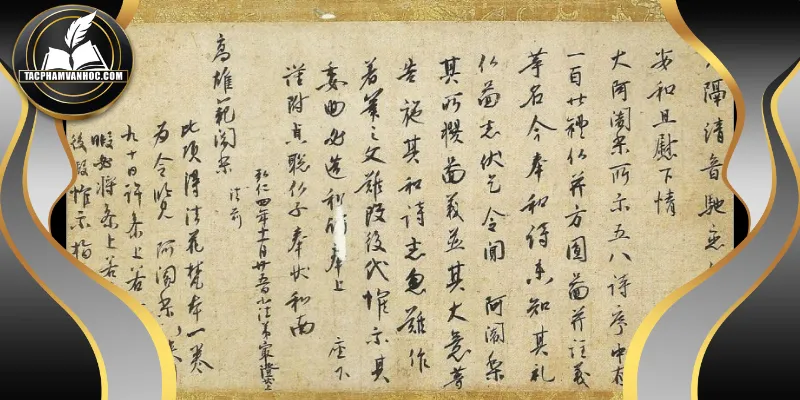 TACPHAMVANHOC.COM
隔清音馳恋
安和且慰下情
大阿闍梨所示五八詩序中有
一百廿禮仏并方圓圖并註義
等名今奉和詩未知其礼
仏圖者伏乞令聞 阿闍梨
其所撰圖義並其大意等
告施其和詩者忽難作
著筆之文難改後代惟示其
委曲必造和詩奉上 座下
謹附貞聡仏子奉状和南
弘仁四年十一月廿五日小法弟最澄
高雄範闍梨 法前
此頃得法花梵本一巻
為令覧 阿闍梨
九十日許参上若
暇必将参上若
後暇惟示指